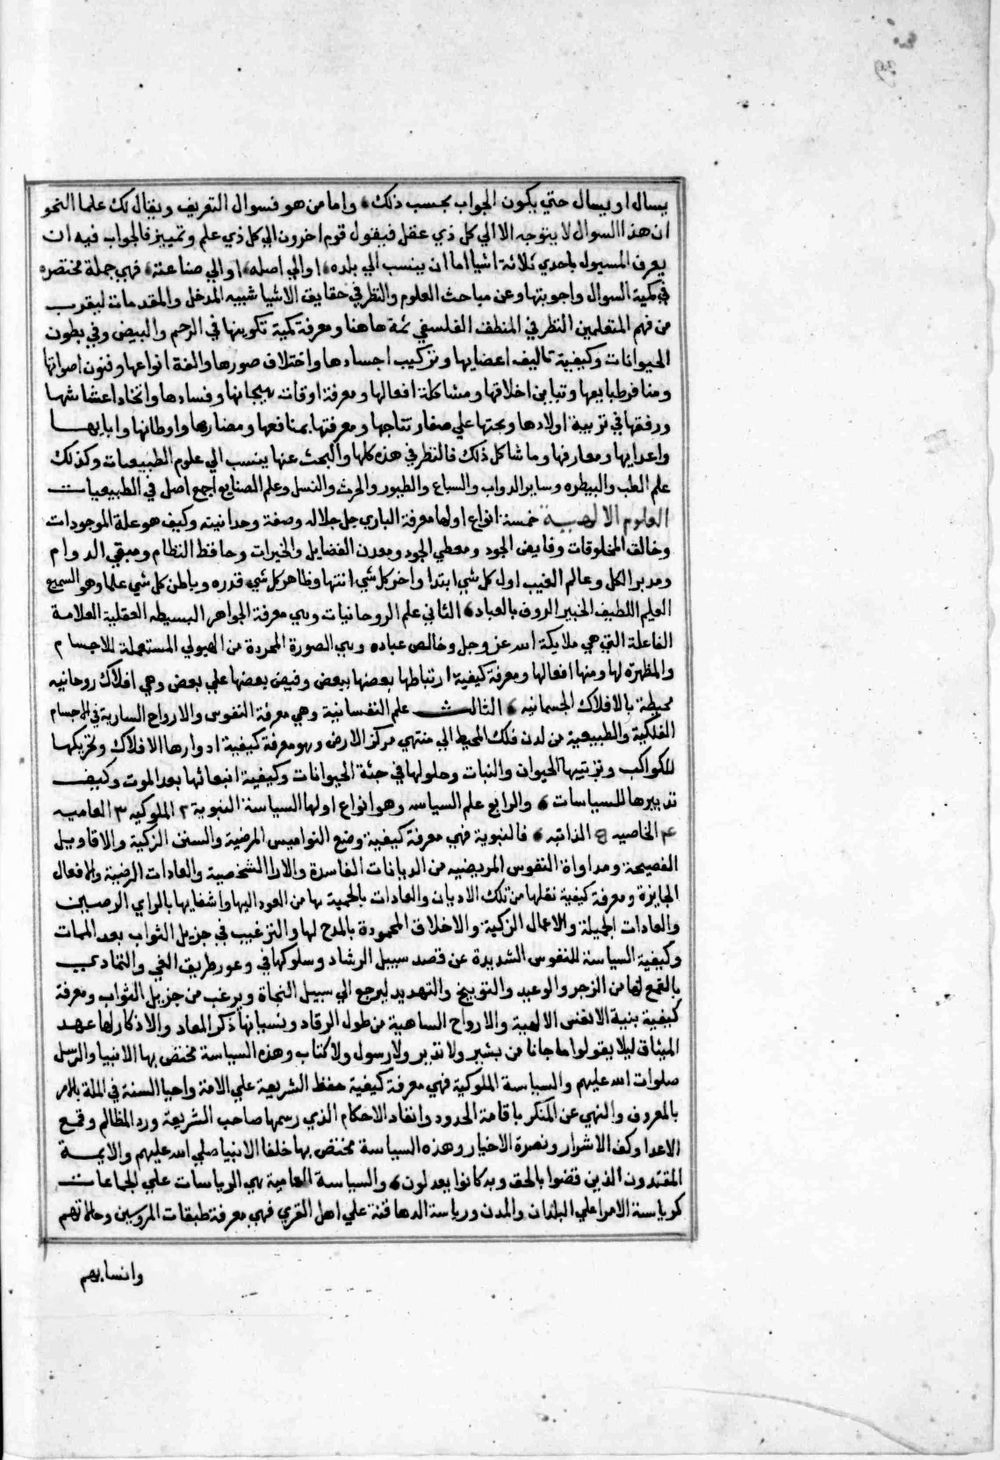 يسال او يسال حتي يكون الجواب بحسب ذلك واما من هو فسوال التعريف ويقال لك علما النحو
ان هذا السوال لا يتوجه الا الي كل ذي عقل فيقول قوم اخرون الي كل ذي علم وتمييز فالجواب فيه ان
يعرف المسيول باحدي ثلاثة اشيا اما ان ينسب الي بلده او الي اصله او الي صناعته فهي جملة مختصره
في كمية السوال واجوبتها وعن مباحث العلوم والنظر في حقايق الاشيا شبيه المدخل والمقدمات ليقرب
من فهم المتعلمين النظر في المنطق الفلسفي ثمة هاهنا ومعرفة كمية تكوينها في الرحم والبيض وفي بطون
الحيوانات وكيفية تاليف اعضايها وتركيب اجسادها واختلاف صورها والفة انواعها وفنون اصواتها
ومنافر طبايعها وتباين اخلاقها ومشاكلة افعالها ومعرفة اوقات هيجانها وفسادها واتخاد اعشاشها
ورفقها في تربية اولادها وتحننها علي صغار نتاجها ومعرفتها بمنافعها ومضارها واوطانها وابايها
واعدايها ومعارفها وما شاكل ذلك فالنظر في هذه كلها والبحث عنها ينسب الي علوم الطبيعيات وكذلك
علم الطب والبيطره وساير الدواب والسباع والطيور والحرث والنسل وعلم الصنايع اجمع اصل في الطبيعيات
العلوم الالهية خمسة انواع اولها معرفة الباري جل جلاله وصفة وحدانيته وكيف هو علة الموجودات
وخالق المخلوقات وفايض الجود ومعطي الجود ومعدن الفضايل والخيرات وحافظ النظام ومبقي الدوام
ومدبر الكل وعالم الغيب اول كل شي ابتدا واخر كل شي انتها وظاهر كل شي قدره وباطن كل شي علما وهو السميع
العليم اللطيف الخبير الروف بالعباد الثاني علم الروحانيات وهي معرفة الجواهر البسيطه العقلية العلامة
الفاعلة التي هي ملايكة الله عز وجل وخالص عباده وهي الصورة المجردة من الهيولي المستعملة للاجسام
والمظهره لها ومنها افعالها ومعرفة كيفية ارتباطها بعضها ببعض وفيض بعضها علي بعض وهي افلاك روحانيه
محيطة بالافلاك الجسمانيه الثالث علم النفسانية وهي معرفة النفوس والارواح السارية في الاجسام
الفلكية والطبيعية من لدن فلك المحيط الي منتهي مركز الارض وهو معرفة كيفية ادوارها الافلاك وتحريكها
للكواكب وتربيتها الحيوان والنبات وحلولها في جثة الحيوانات وكيفية انبعاثها بعد الموت وكيف
تدبيرها للسياسات والرابع علم السياسه وهو انواع اولها السياسة النبوية ٢ الملوكيه ٣ العاميه
٤ الخاصيه ٥ الذاتيه فالنبوية فهي معرفة كيفية وضع النواميس المرضية والسنن الزكية والاقاويل
الفصيحة ومداواة النفوس المريضيه من الديانات الفاسدة والارا الشخصية والعادات الرضية والافعال
الجايزة ومعرفة كيفية نقلها من تلك الاديان والعادات بالحمية بها من العود اليها واشفايها بالراي الرصين
والعادات الجميلة والاعمال الزكية والاخلاق المحمودة بالمدح لها والترغيب في جزيل الثواب بعد الممات
وكيفية السياسة للنفوس الشديدة عن قصد سبيل الرشاد وسلوكها في وعور طريق الغي والتمادي
بالقمع لها من الزجر والوعيد والتوبيخ والتهديد ليرجع الي سبيل النجاة ويرغب من جزيل الثواب ومعرفة
كيفية بنية الانفس الالهية والارواح الساهية من طول الرقاد ونسيانها ذكر المعاد والاذكار لها عهد
الميثاق ليلا يقولوا ما جانا من بشير ولا نذير ولا رسول ولا كتاب وهذه السياسة مختص بها الانبيا والرسل
صلوات الله عليهم والسياسة الملوكية فهي معرفة كيفية حفظ الشريعة علي الامة واحيا السنة في الملة بالامر
بالمعروف والنهي عن المنكر باقامة الحدود وانفاد الاحكام الذي رسمها صاحب الشريعة ورد المظالم وقمع
الاعدا وكف الاشرار ونصرة الاخيار وهذه السياسة مختص بها خلفا الانبيا صلي الله عليهم والايمة
المقتدون الذين قضوا بالحق وبه كانوا يعدلون والسياسة العامية هي الرياسات علي الجماعات
كرياسة الامرا علي البلدان والمدن ورياسة الدهاقنة علي اهل القري فهي معرفة طبقات المروسين وحالاتهم
وانسابهم